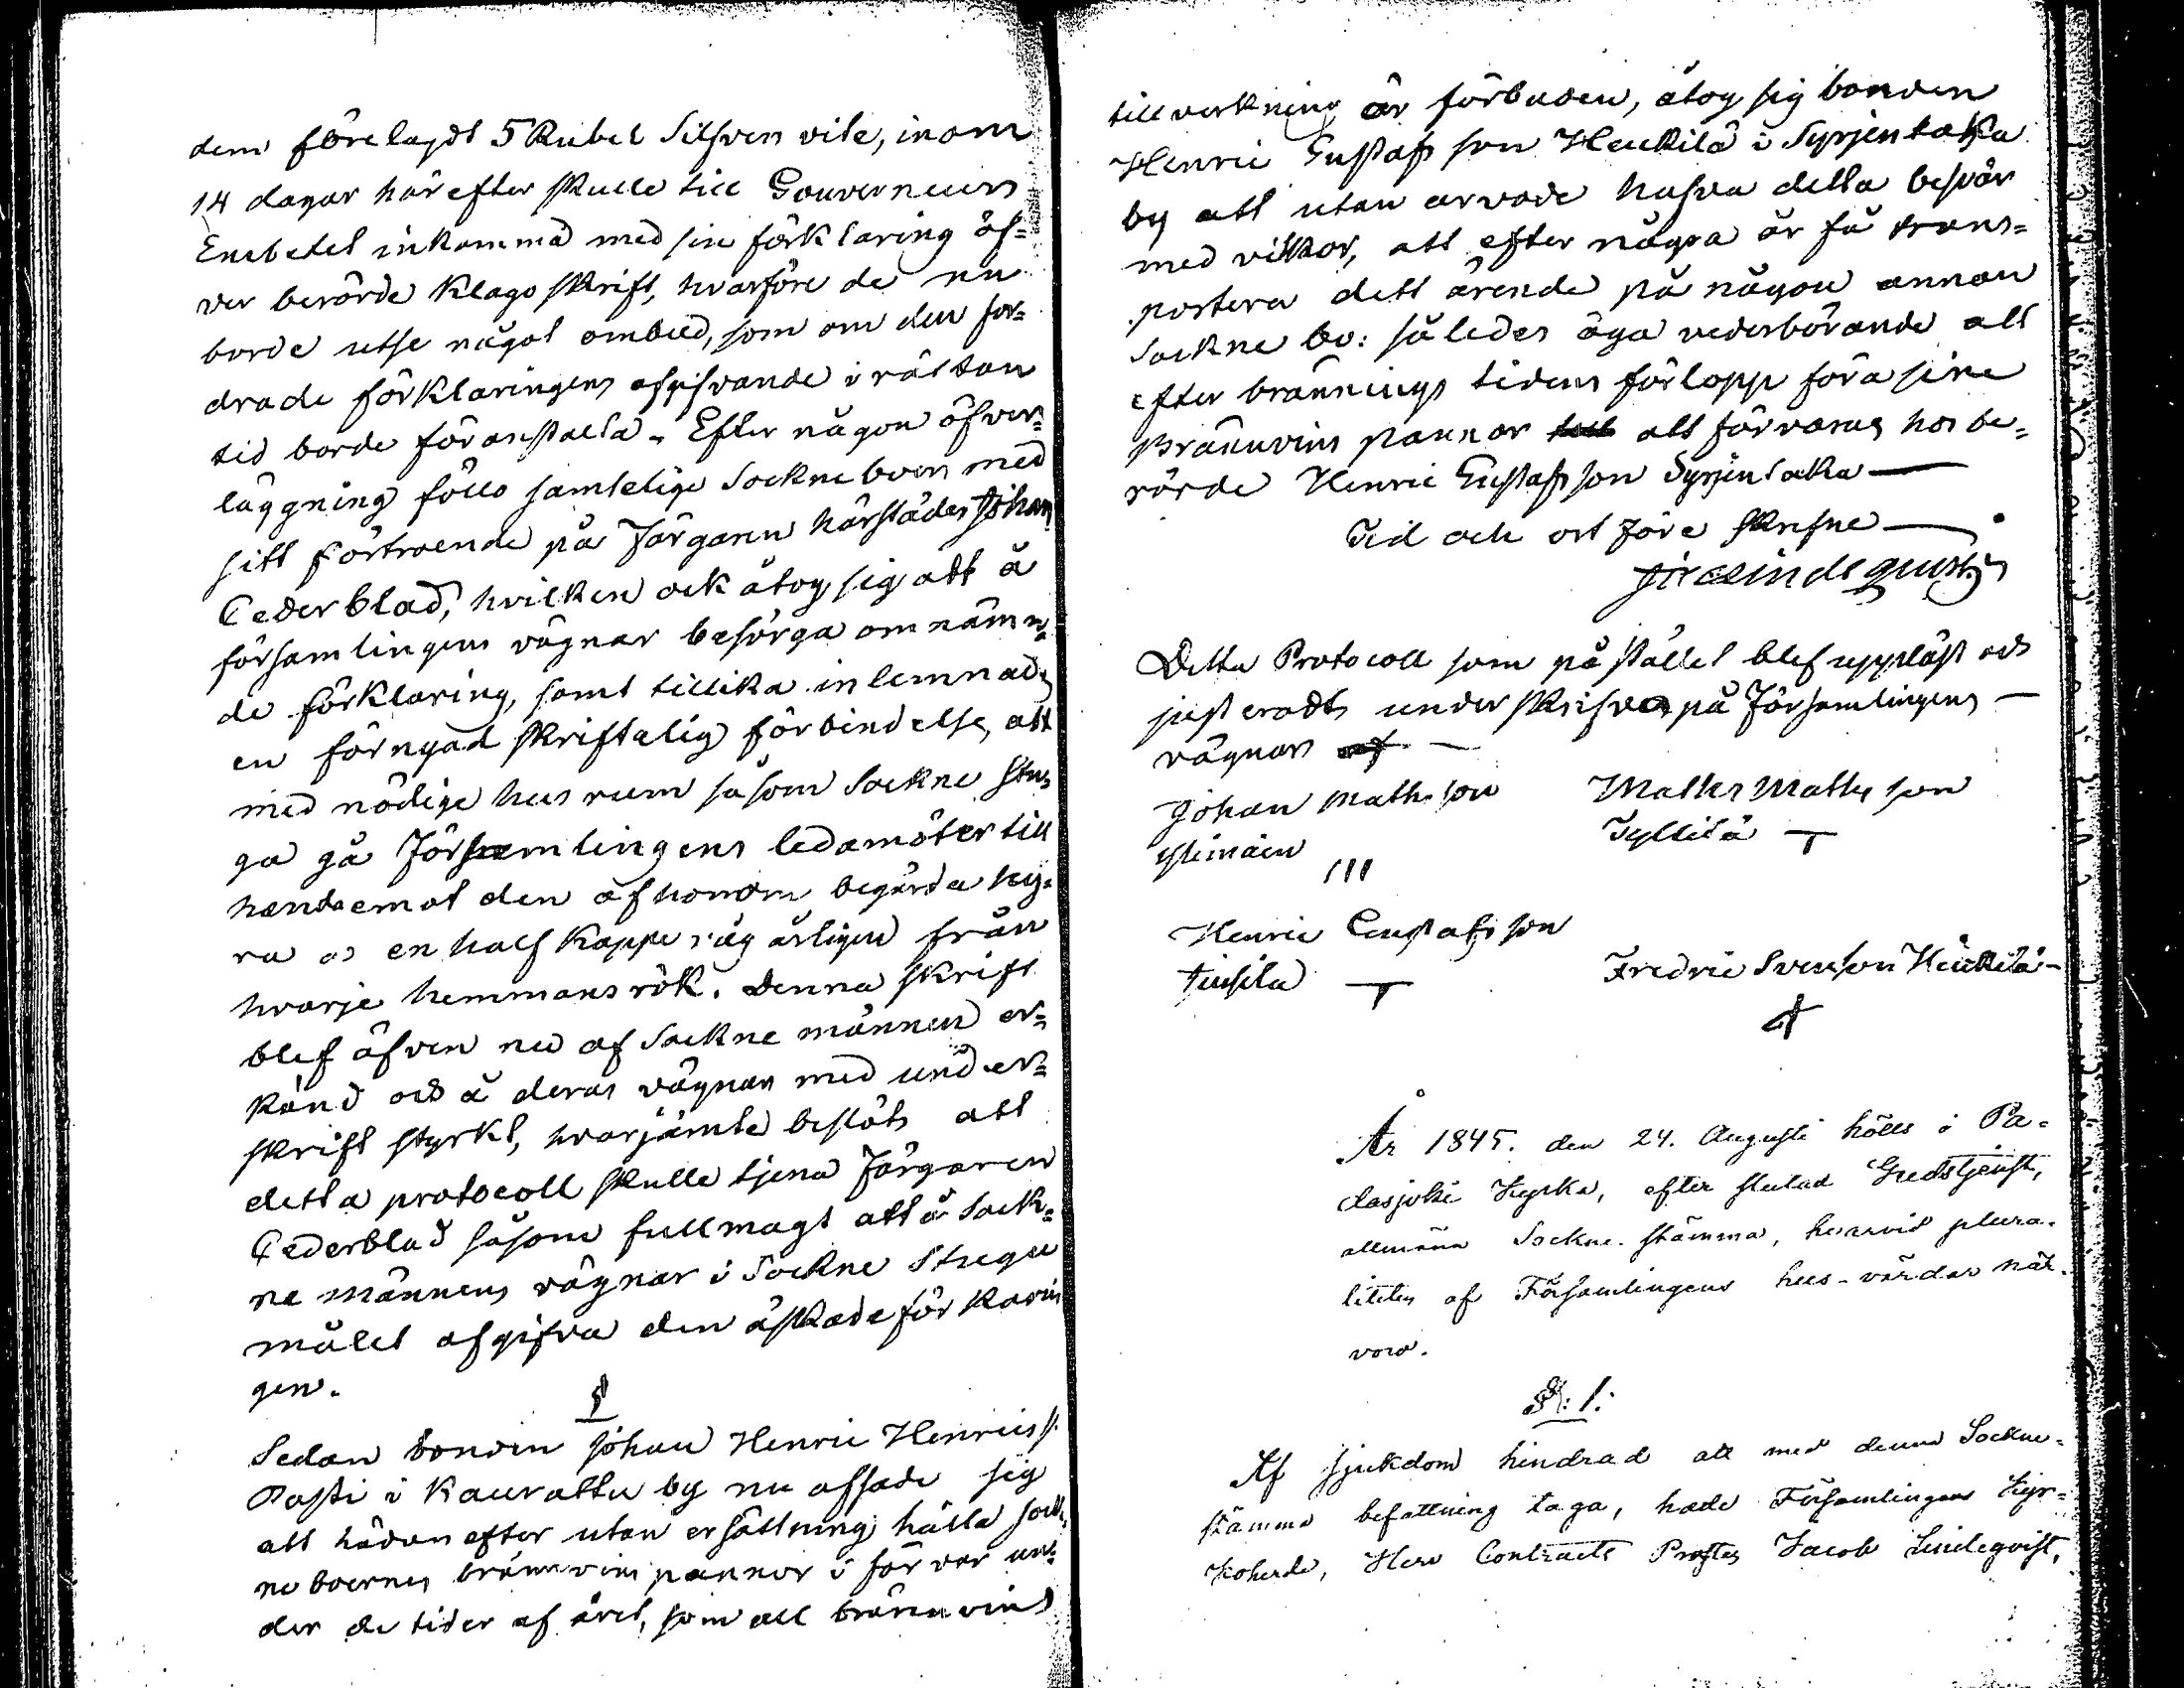 dem förelagdt 5 Rubel Silfver vite, inom
14 dagar här efter skulle till Gouverneurs
Embetet inkomma med sin förklaring öf=
ver berörde Klago skrift, hvarföre de nu
borde utse något ombud, som om den for=
drade förklaringens afgifvande i rättan
tid borde föranstalta. Efter någon öfver=
läggning föllo samtelige Sockneboer med
sitt förtroende på Färgaren härstädes Johan
Cederblad, hvilken ock åtog sig att å
församlingens vägnar besörga om nämn=
de förklaring, samt tillika inlemnade
en förnyad skriftelig förbindelse, att
med nödige hus rum såsom Sockne stu=
ga gå Församlingens ledamöter till
handa emot den af honom begärda hy=
ra a en half Kappe råg årligen från
hvarje hemmans rök. Denna skrift
blef äfven nu af Sockne männen er=
känd och å deras vägnar med under=
skrift styrkt, hvarjämte beslöts att
detta protocoll skulle tjena Färgaren
Cederblad såsom fullmagt att å Sock=
ne männens vägnar i Sockne Stugu
målet afgifva den äskade förklarin
gen.
§
Sedan bonden Johan Henric Henricss.
Pasti i Kaurattu by nu afsade sig
att hädanefter utan ersättning hålla sock=
ne boernes brännvins pannor i förvar un=
der de tider af året, som all brännvins
tillverkning är förbuden, åtog sig bonden
Henric Gustafsson Heikkilä i Syrjentaka
by att utan arvode hafva detta besvär
med vilkor, att efter några år få trans=
portera dett ärende på någon annan
Sockne bo: således äga vederbörande att
efter brännings tidens förlopp föra sine
Brännvins pannor att förvaras hos be=
rörde Henric Gustafsson Syrjentaka
Tid och ort före skrefne
Detta Protocoll som på stället blef uppläst och
justeradt, underskrifves på Församlingens
vägnar
Johan Mathsson
III
Matts Mattsson
Henric Gustafsson
Fredric Svensson Heikkilä
År 1845. den 24. Augusti hölls i Pa=
dasjoki Kyrka, efter slutad Gudstjenst,
allmänn Sockne-stämma, hvarvid plura-
liteten af Församlingens hus-värdar när-
voro.
§: 1:
Af sjukdom hindrad att med denna Sockne-
stämma befattning taga, hade Församlingens Kyr=
koherde, Herr Contracts Prosten Jacob Lindeqvist,